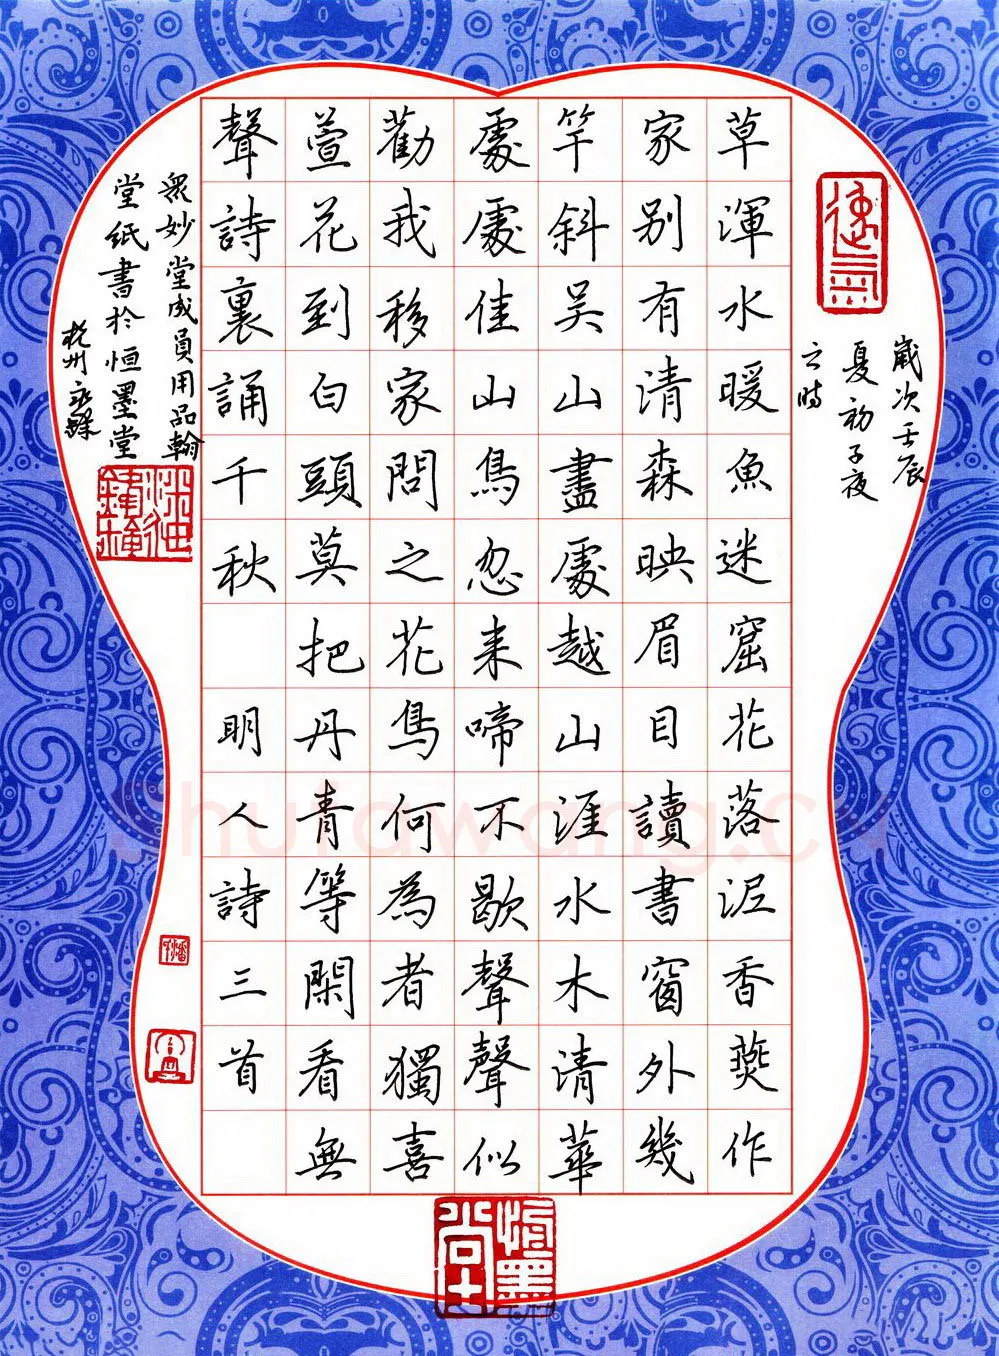 歲次壬辰
夏初子夜
云時
草渾水暖魚迷窟花落泥香燕作
家别有清森映眉目讀書窗外幾
竿斜吴山盡處越山涯水木清華
處處佳山鳥忽来啼不歇聲聲似
勸我移家問之花鳥何為者獨喜
萱花到白頭莫把丹青等閑看無
聲詩裏誦千秋 明人詩三首
衆妙堂成員用品翰
堂紙書於恒墨堂
杭州
恒墨堂
Shufawang.cn